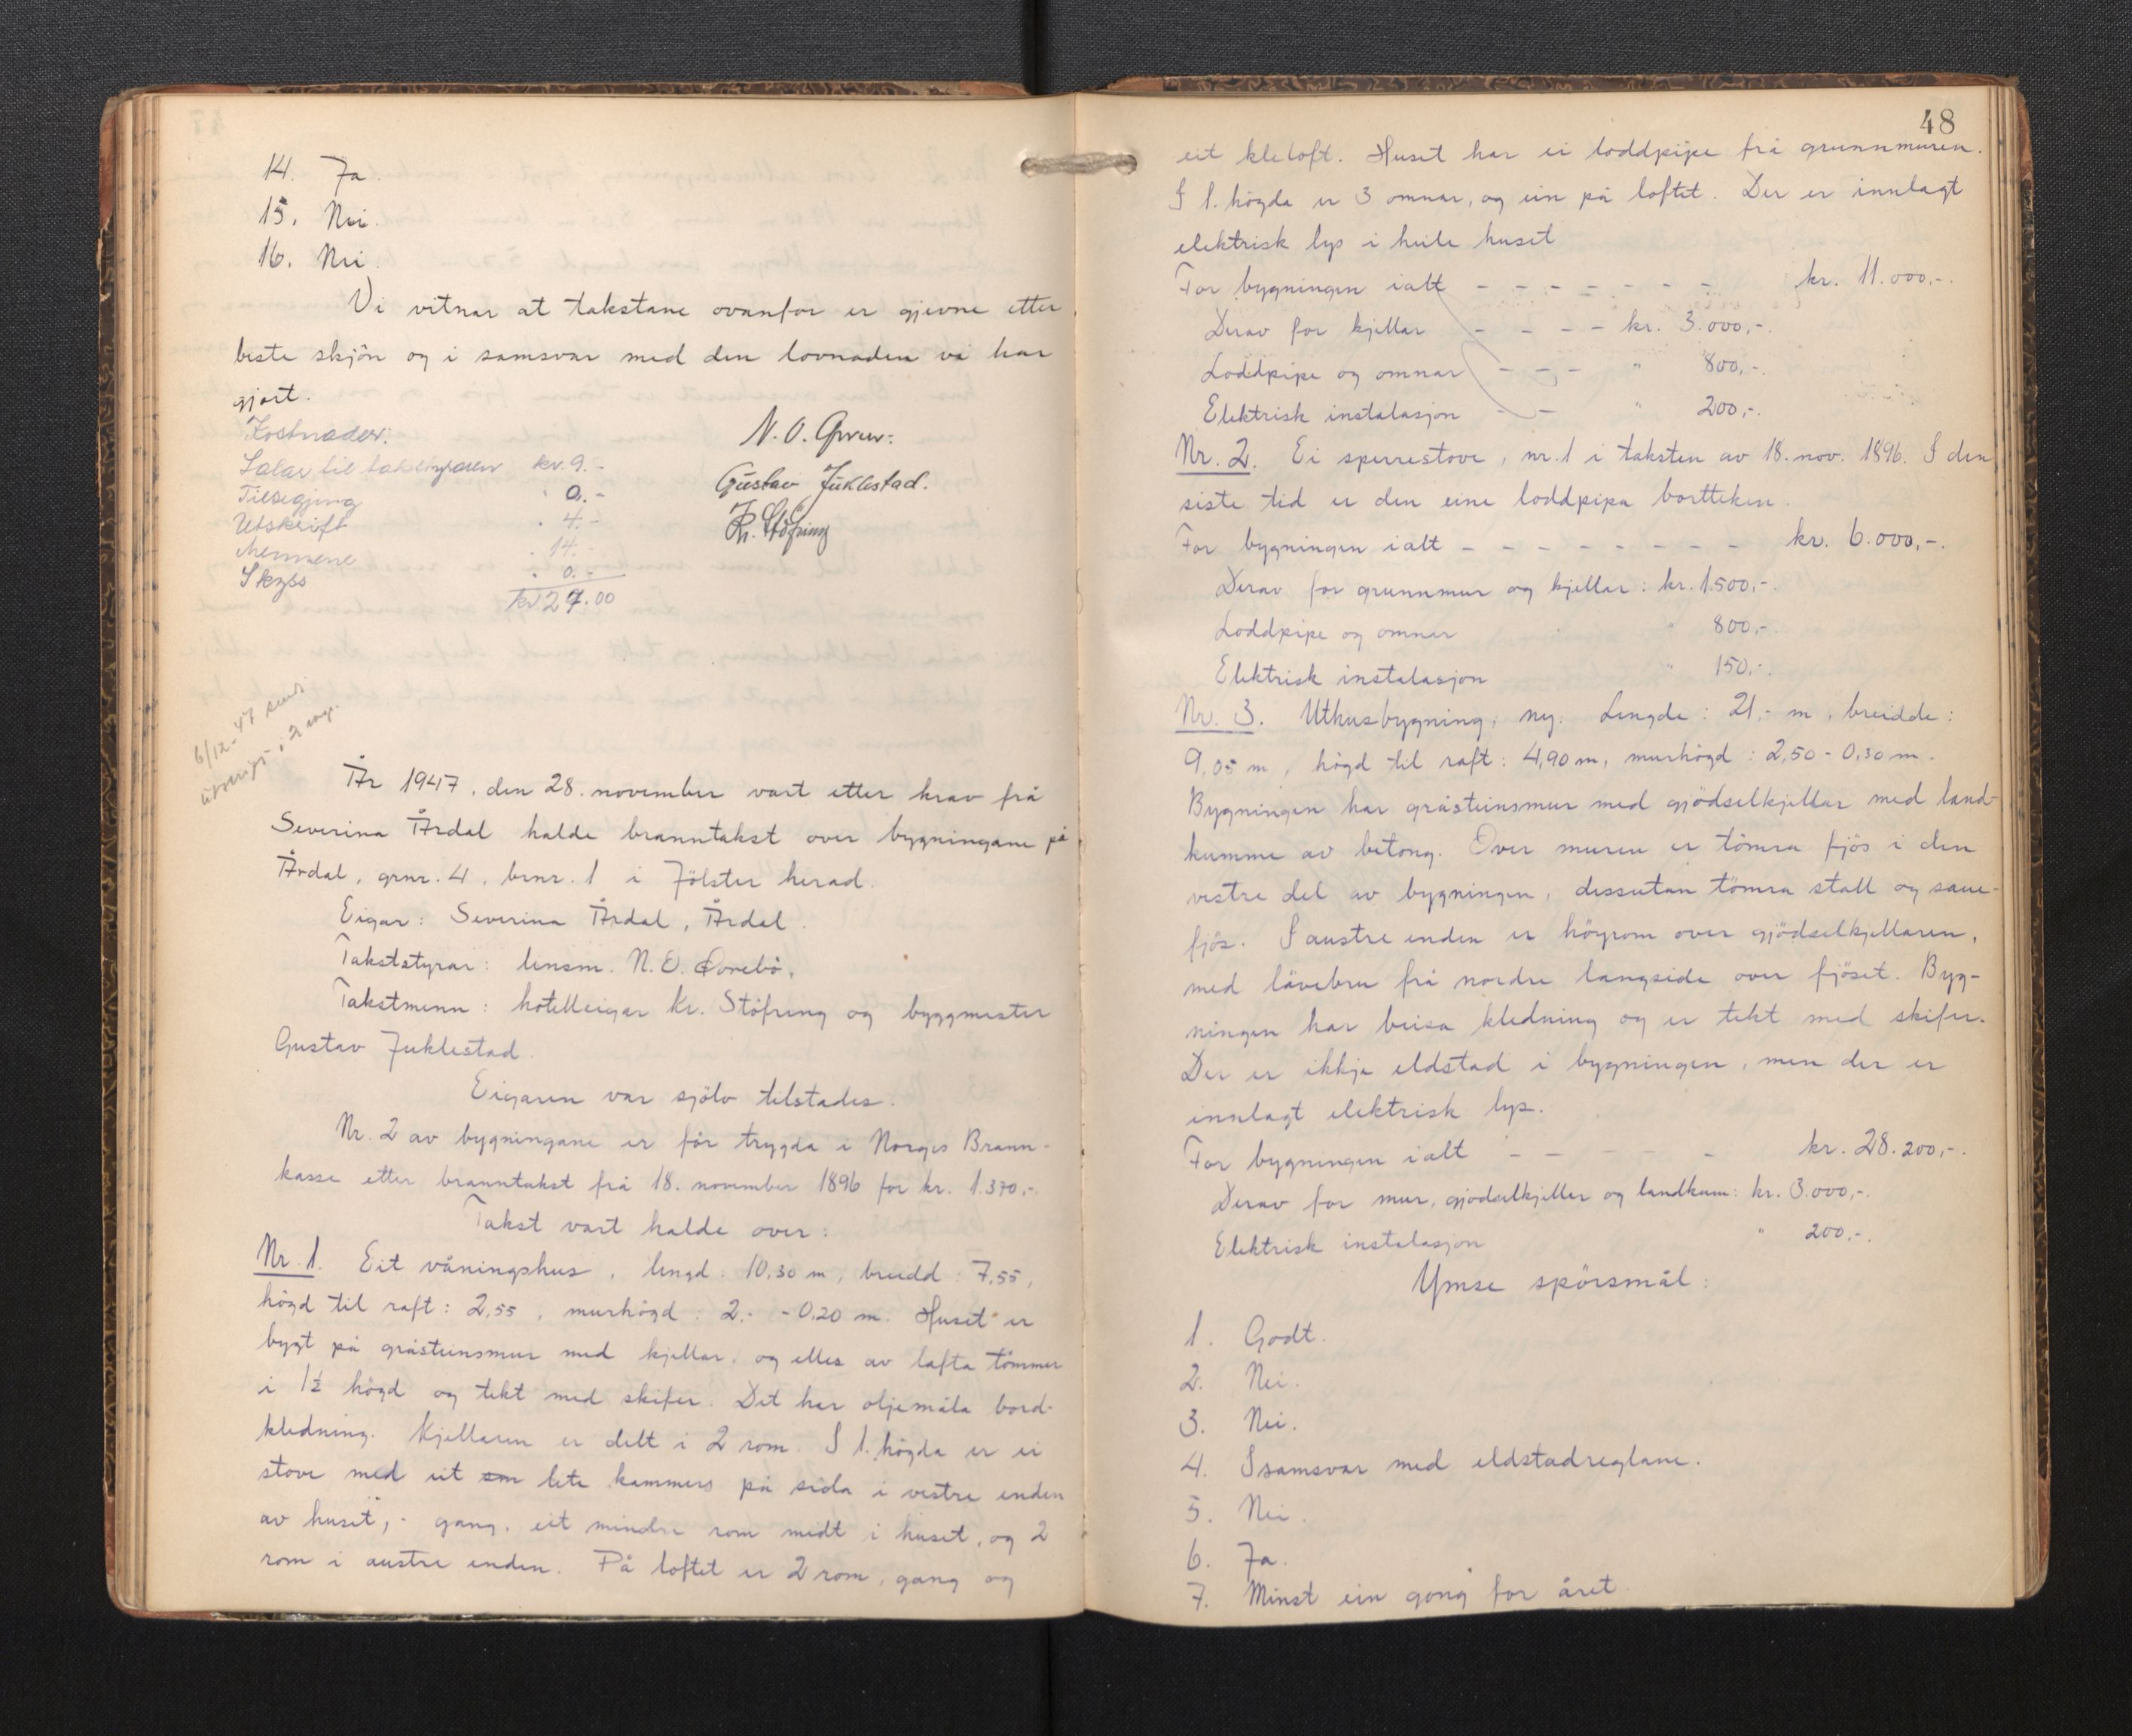 14. Ja.
15. Nei.
16. Nei.
Vi vitnar at takstane ovanfor er gjevne etter
beste skjön og i samsvar med den lovnaden vi har
gjort.
Kostnader:
Salar til takstyraren kr. 9.-
Tilsegjing " 0.-
Utskrift " 4.-
Mennene " 14.-
Skyss " 0.-
kr 27.00
N. O.
Gustav Juklestad.
Kr. Stöfring
6/12-47 send
utskrift i 2 eks.
År 1947, den 28. november vart etter krav frå
Severina Årdal halde branntakst over bygningane på
Årdal, grnr. 4, brnr. 1 i Jölster herad.
Eigar: Severina Årdal, Årdal.
Takststyrar: lensm. N. O. Orrebö.
Takstmenn: hotelleigar Kr. Stöfring og byggmester
Gustav Juklestad.
Eigaren var sjölv tilstades.
Nr. 2 av bygningane er för trygda i Norges Brann-
kasse etter branntakst frå 18. november 1896 for kr. 1.370,-.
Takst vart halde over:
Nr. 1. Eit våningshus, lengd: 10,30 m, breidd: 7,55,
högd til raft: 2,55, murhögd: 2.- - 0,20 m. Huset er
bygt på gråsteinsmur med kjellar, og elles av lafta tömmer
i 1½ högd og tekt med skifer. Det har oljemåla bord-
kledning. Kjellaren er delt i 2 rom. I 1. högda er ei
stove med eit lete kammers på sida i vestre enden
av huset, - gang, eit mindre rom midt i huset, og 2
rom i austre enden. På loftet er 2 rom, gang og
48
eit kleloft. Huset har ei loddpipe frå grunnmuren.
I 1. högda er 3 omnar, og ein på loftet. Der er innlagt
elektrisk lys i heile huset
For bygningen ialt - - - - - - - kr. 11.000,-.
Derav for kjellar - - - - kr. 3.000,-.
Loddpipe og omnar - - - " 800,-.
Elektrisk instalasjon - - " 200,-.
Nr. 2. Ei sperrestove, nr. 1 i taksten av 18. nov. 1896. I den
siste tid er den eine loddpipa bortteken.
For bygningen ialt - - - - - - - - kr. 6.000,-.
Derav for grunnmur og kjellar: kr. 1.500,-.
Loddpipe og omner " 800,-.
Elektrisk instalasjon " 150,-.
Nr. 3. Uthusbygning, ny. Lengde: 21,- m, breidde:
9,05 m, högd til raft: 4,90 m, murhögd: 2,50 - 0,30 m.
Bygningen har gråsteinsmur med gjödselkjellar med land-
kumme av betong. Over muren er tömra fjös i den
vestre del av bygningen, dessutan tömra stall og saue-
fjös. I austre enden er höyrom over gjödselkjellaren,
med låvebru frå nordre langside over fjöset. Byg-
ningen har beisa kledning og er tekt med skifer.
Der er ikkje eldstad i bygningen, men der er
innlagt elektrisk lys.
For bygningen ialt - - - - - kr. 28.200,-.
Derav for mur, gjödselkjeller og landkum: kr. 3.000,-.
Elektrisk instalasjon " 200,-.
Ymse spörsmål:
1. Godt.
2. Nei.
3. Nei.
4. I samsvar med eldstadreglane.
5. Nei.
6. Ja.
7. Minst ein gong for året.